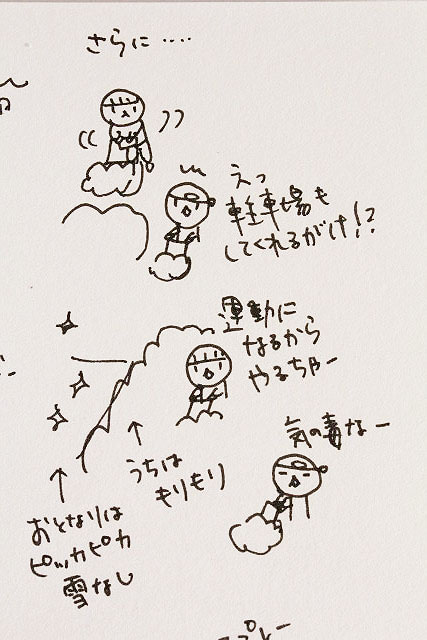 さらに‥‥
えっ
駐車場も
してくれるがけ!?
運動に
なるから
やるちゃー
気の毒なー
うちは
もりもり
おとなりは
ピッカピカ
雪なし